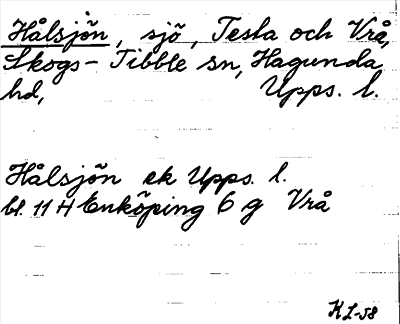 Hålsjön, sjö, Tesla och Vrå,
Skogs-Tibble sn, Hagunda
hd, Upps. l.
Hålsjön ek Upps. l.
bl. 11 H Enköping 6 g Vrå
KL-58